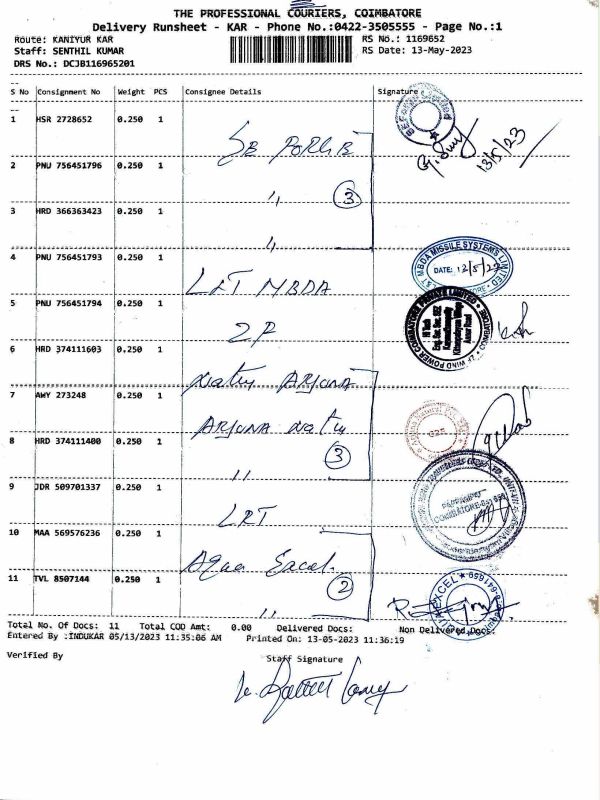 THE PROFESSIONAL COURIERS, COIMBATORE
Delivery Runsheet - KAR - Phone No.:0422-3505555 - Page No.:1
Route: KANIYUR KAR RS No.: 1169652
Staff: SENTHIL KUMAR RS Date: 13-May-2023
DRS No.: DCJB116965201
S No Consignment No Weight PCS Consignee Details Signature
1 HSR 2728652 0.250 1
2 PNU 756451796 0.250 1
" 3
13/5/23
3 HRD 366363423 0.250 1
"
4 PNU 756451793 0.250 1
L&T MBDA
MBDA MISSILE SYSTEMS LIMITED
DATE: 13/5/23
5 PNU 756451794 0.250 1
ZF
WIND POWER COIMBATORE PRIVATE LIMITED
6 HRD 374111603 0.250 1
Natu ARJUNA
7 AWY 273248 0.250 1
ARJUNA Natu
8 HRD 374111400 0.250 1
" 3
9 JDR 509701337 0.250 1
LRT
10 MAA 569576236 0.250 1
Aqua Excel.
11 TVL 8507144 0.250 1
" 2
Total No. Of Docs: 11 Total COD Amt: 0.00 Delivered Docs: Non Delivered Docs:
Entered By :INDUKAR 05/13/2023 11:35:06 AM Printed On: 13-05-2023 11:36:19
Verified By Staff Signature